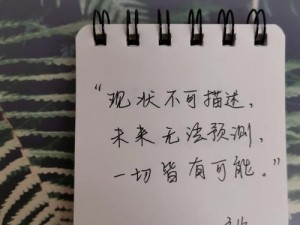 “现状不可描述，
未来无法预测，
一切皆有可能。”